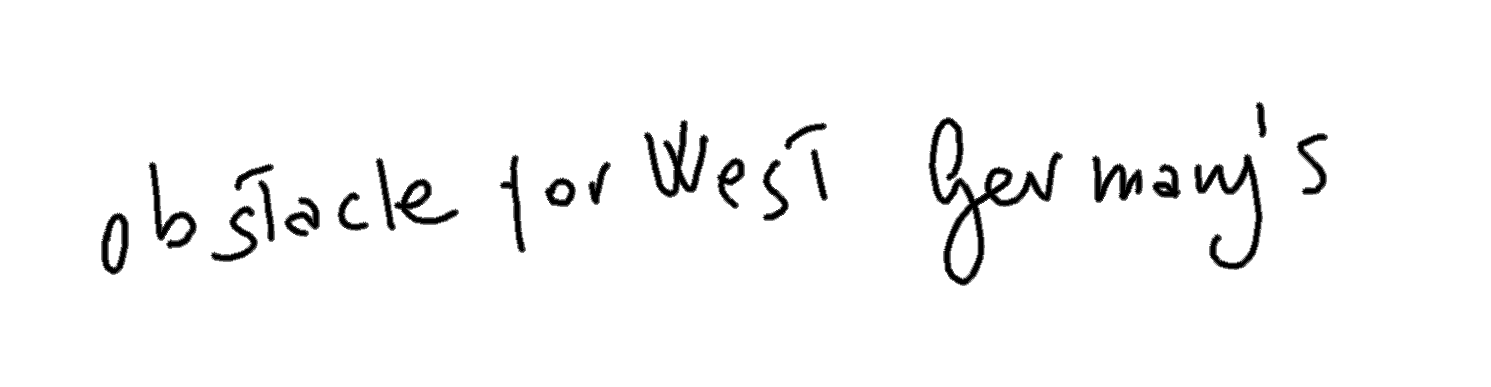 obstacle for West Germany's